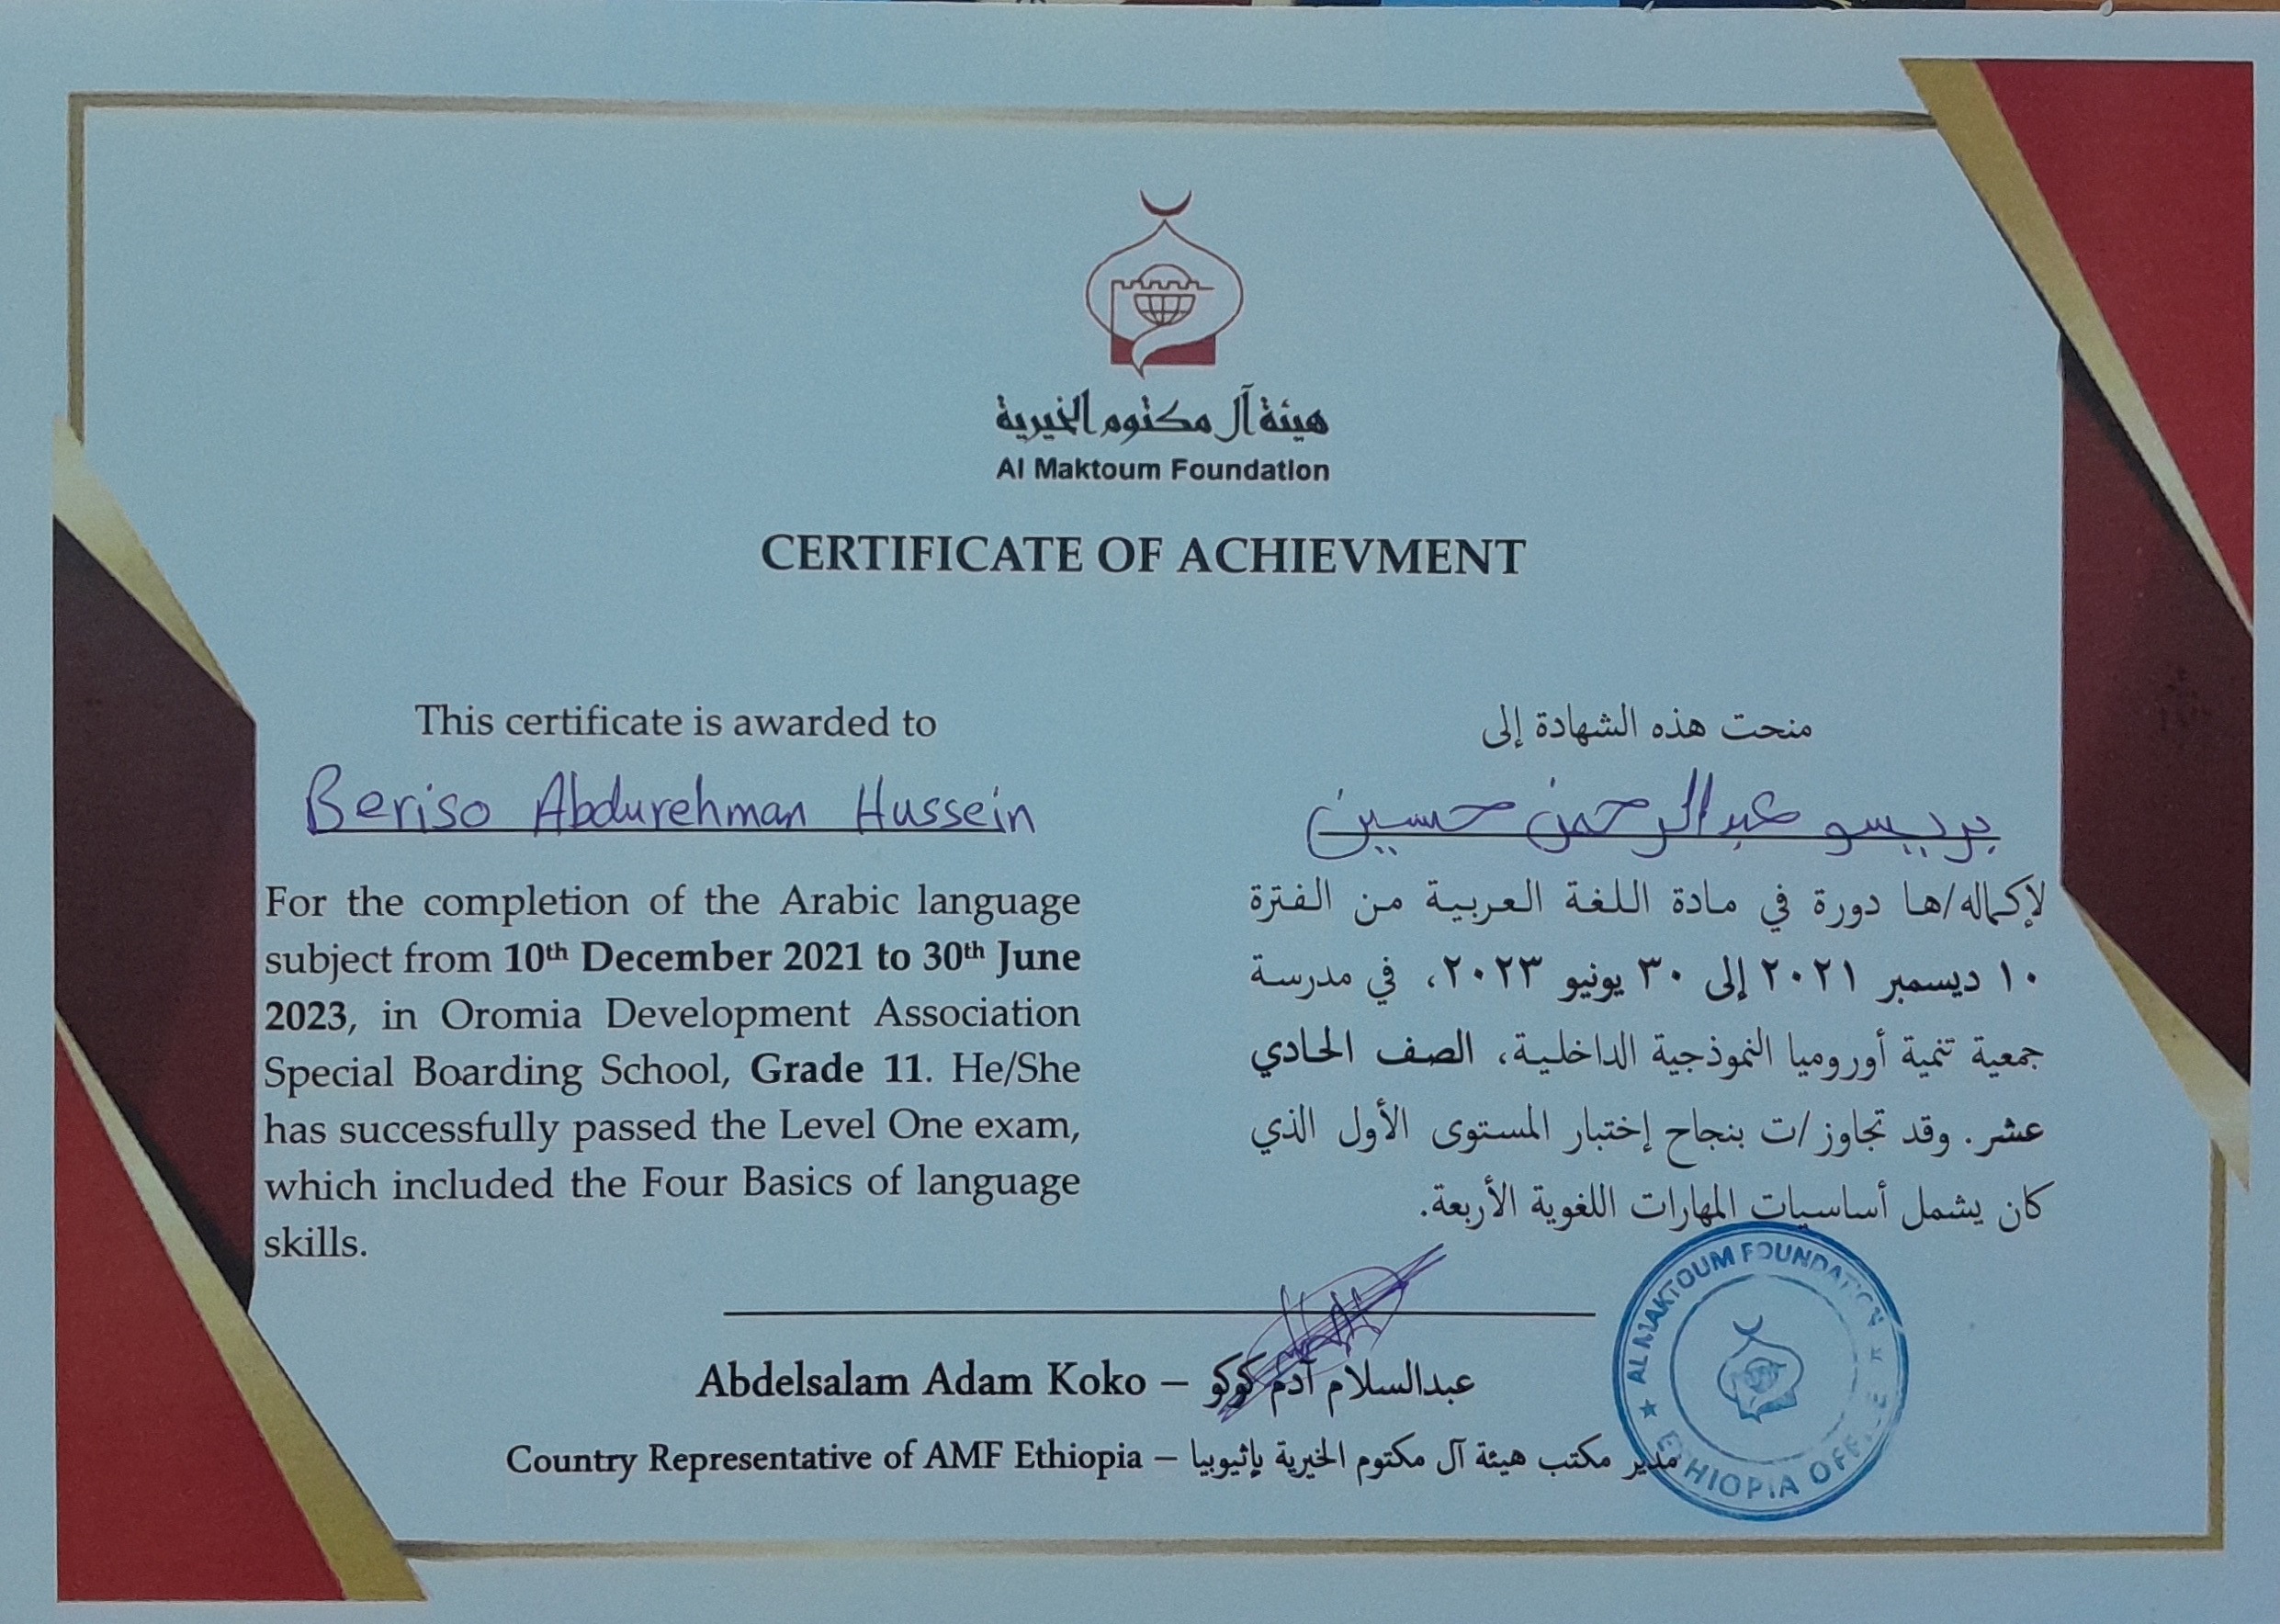 هيئة آل مكتوم الخيرية
Al Maktoum Foundation
CERTIFICATE OF ACHIEVMENT
This certificate is awarded to
Beriso Abdurehman Hussein
For the completion of the Arabic language
subject from 10th December 2021 to 30th June
2023, in Oromia Development Association
Special Boarding School, Grade 11. He/She
has successfully passed the Level One exam,
which included the Four Basics of language
skills.
منحت هذه الشهادة إلى
بريسو عبدالرحمن حسين
لإكماله/ها دورة في مادة اللغة العربية من الفترة
١٠ ديسمبر ٢٠٢١ إلى ٣٠ يونيو ٢٠٢٣، في مدرسة
جمعية تنمية أوروميا النموذجية الداخلية، الصف الحادي
عشر. وقد تجاوز/ت بنجاح إختبار المستوى الأول الذي
كان يشمل أساسيات المهارات اللغوية الأربعة.
Abdelsalam Adam Koko – عبدالسلام آدم كوكو
Country Representative of AMF Ethiopia – مدير مكتب هيئة آل مكتوم الخيرية بإثيوبيا
AL MAKTOUM FOUNDATION
ETHIOPIA OFFICE